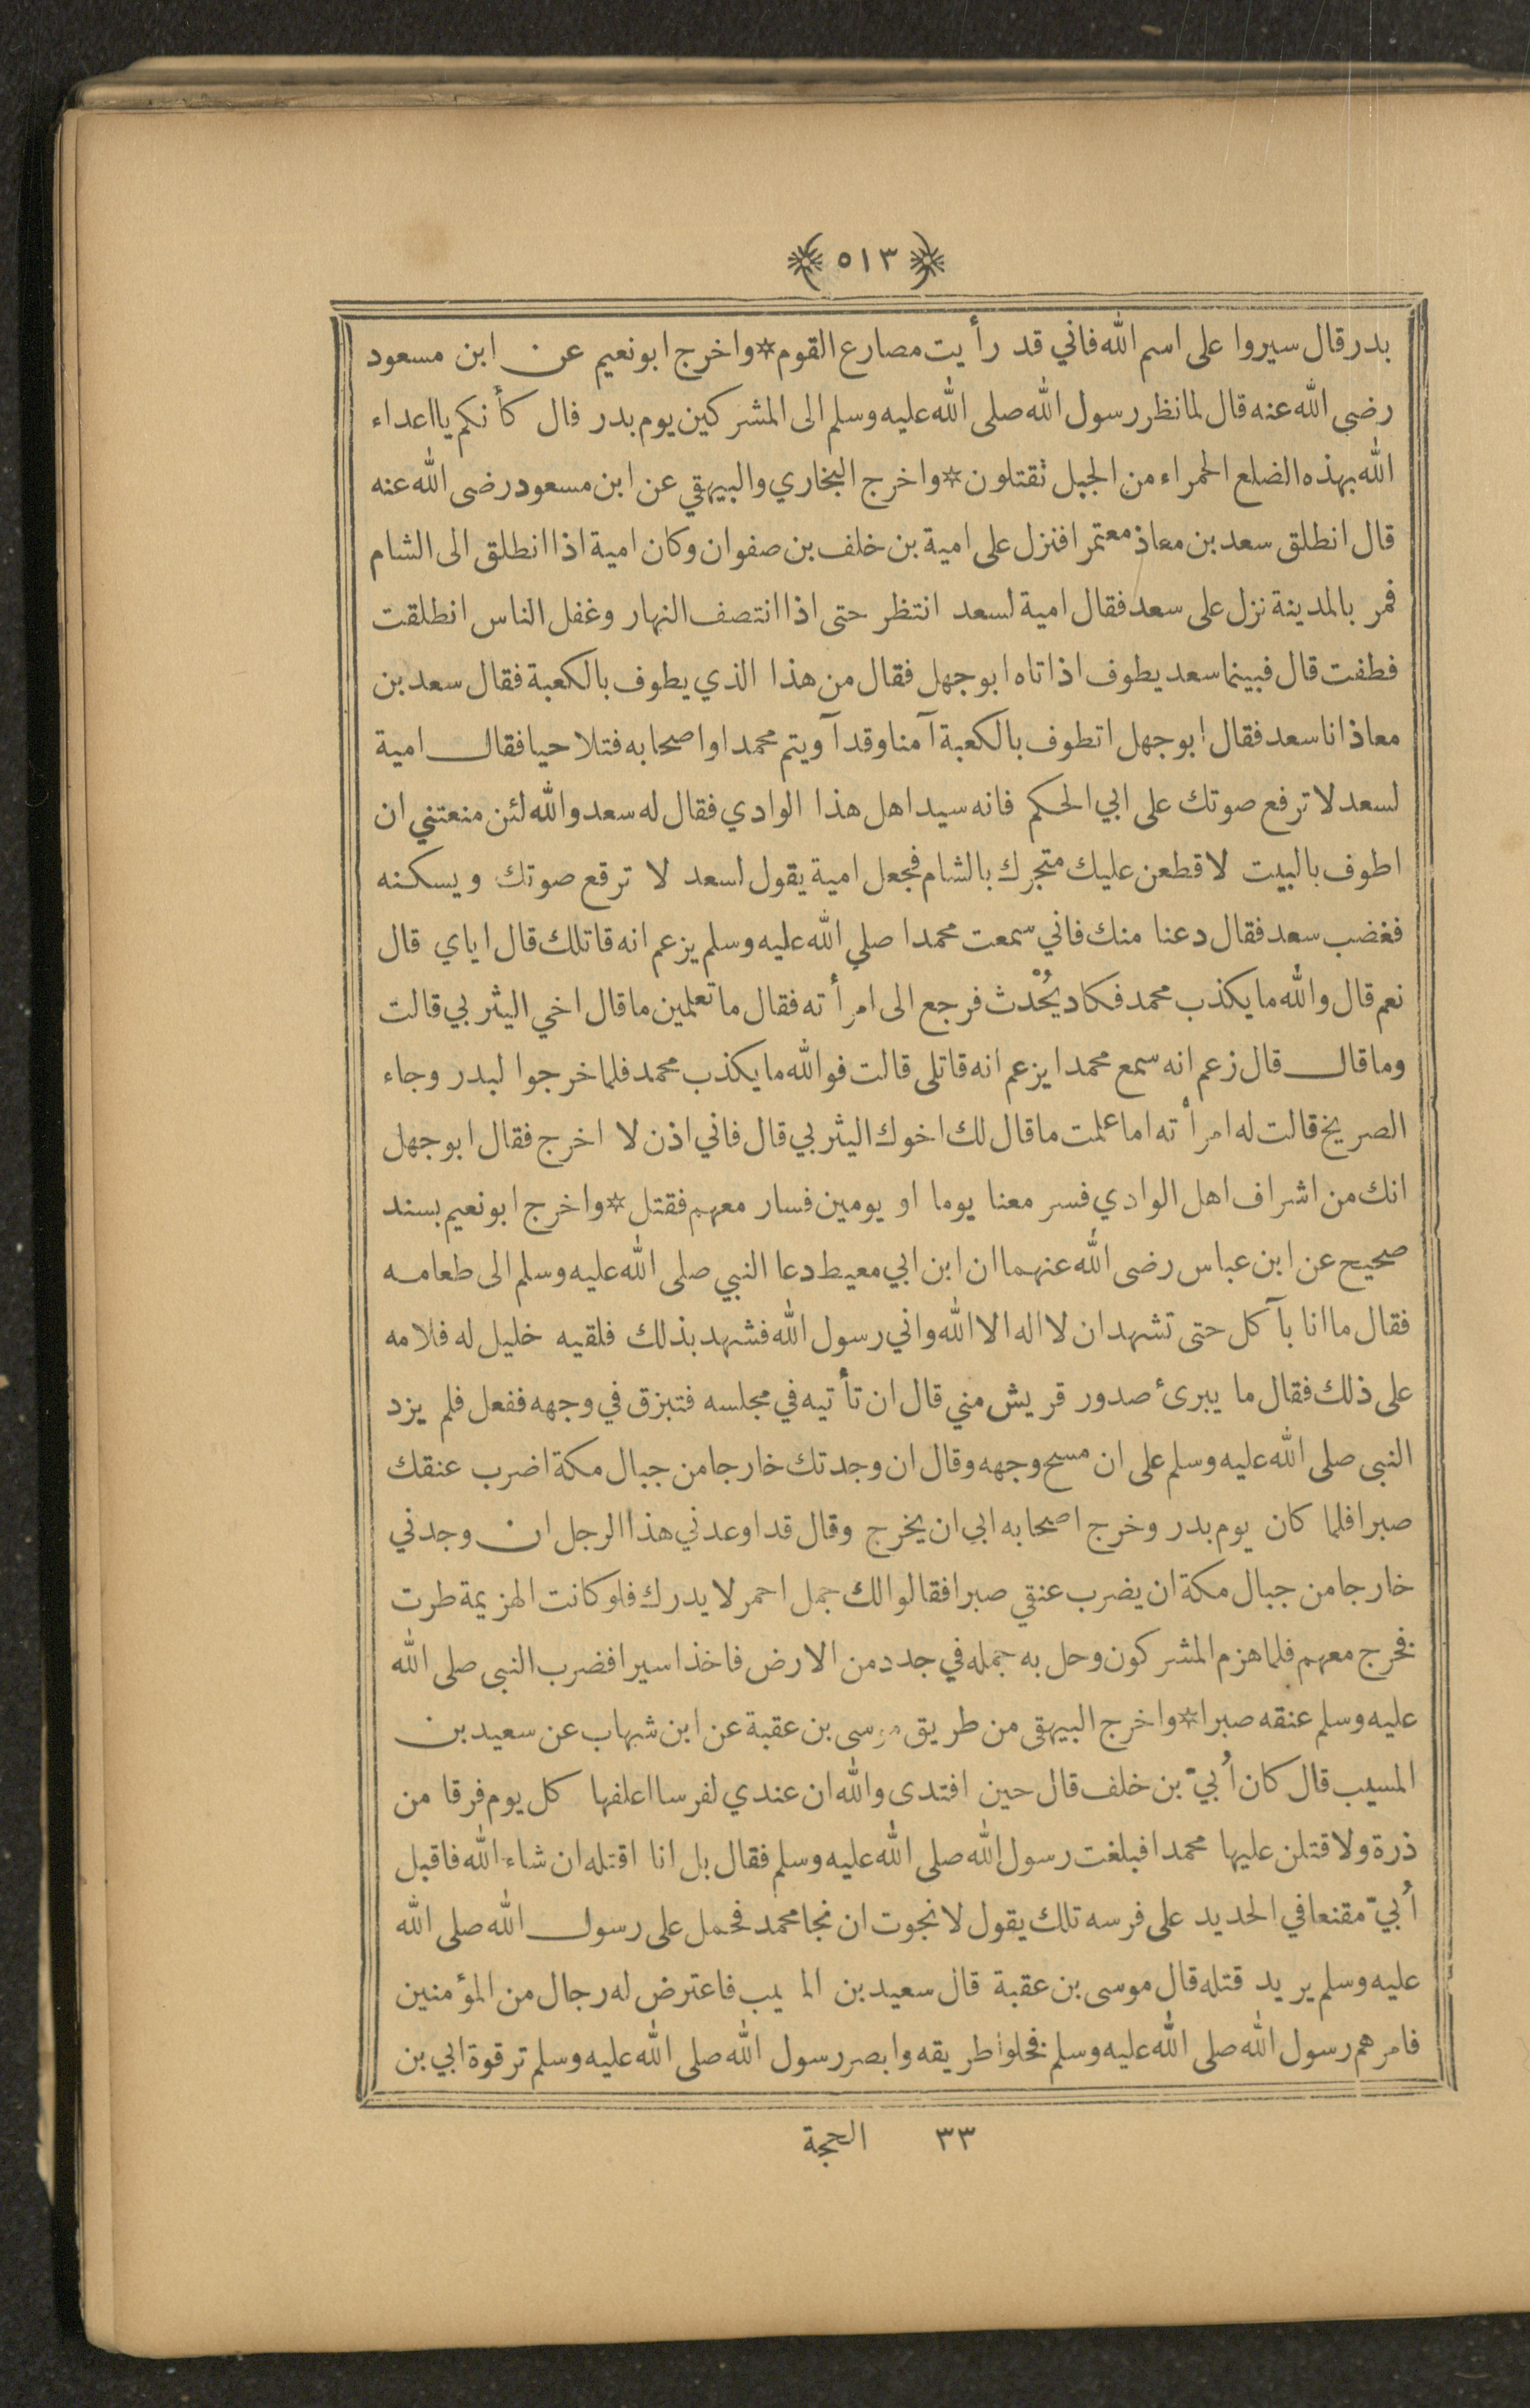 ﴿ ٥١٣ ﴾
بدر قال سيروا على اسم الله فاني قد رأيت مصارع القوم * واخرج ابو نعيم عن ابن مسعود
رضي الله عنه قال لما نظر رسول الله صلى الله عليه وسلم الى المشركين يوم بدر قال كأنكم يا اعداء
الله بهذه الضلع الحمراء من الجبل تقتلون * واخرج البخاري والبيهقي عن ابن مسعود رضى الله عنه
قال انطلق سعد بن معاذ معتمرا فنزل على امية بن خلف بن صفوان وكان امية اذا انطلق الى الشام
فمر بالمدينة نزل على سعد فقال امية لسعد انتظر حتى اذا انتصف النهار وغفل الناس انطلقت
فطفت قال فبينما سعد يطوف اذ اتاه ابو جهل فقال من هذا الذي يطوف بالكعبة فقال سعد بن
معاذ انا سعد فقال ابو جهل اتطوف بالكعبة آمنا وقد آويتم محمدا واصحابه فتلاحيا فقال امية
لسعد لا ترفع صوتك على ابي الحكم فانه سيد اهل هذا الوادي فقال له سعد والله لئن منعتني ان
اطوف بالبيت لاقطعن عليك متجرك بالشام فجعل امية يقول لسعد لا ترفع صوتك ويسكنه
فغضب سعد فقال دعنا منك فاني سمعت محمدا صلى الله عليه وسلم يزعم انه قاتلك قال اياي قال
نعم قال والله ما يكذب محمد فكاد يُحْدث فرجع الى امرأته فقال ما تعلمين ما قال اخي اليثربي قالت
وما قال قال زعم انه سمع محمدا يزعم انه قاتلى قالت فوالله ما يكذب محمد فلما خرجوا لبدر وجاء
الصريخ قالت له امرأته اما علمت ما قال لك اخوك اليثربي قال فاني اذن لا اخرج فقال ابو جهل
انك من اشراف اهل الوادي فسر معنا يوما او يومين فسار معهم فقتل * واخرج ابو نعيم بسند
صحيح عن ابن عباس رضى الله عنهما ان ابن ابي معيط دعا النبي صلى الله عليه وسلم الى طعامه
فقال ما انا بآكل حتى تشهد ان لا اله الا الله واني رسول الله فشهد بذلك فلقيه خليل له فلامه
على ذلك فقال ما يبرئ صدور قريش مني قال ان تأتيه في مجلسه فتبزق في وجهه ففعل فلم يزد
النبى صلى الله عليه وسلم على ان مسح وجهه وقال ان وجدتك خارجا من جبال مكة اضرب عنقك
صبرا فلما كان يوم بدر وخرج اصحابه ابى ان يخرج وقال قد اوعدني هذا الرجل ان وجدني
خارجا من جبال مكة ان يضرب عنقي صبرا فقالوا لك جمل احمر لا يدرك فلو كانت الهزيمة طرت
فخرج معهم فلما هزم المشركون وحل به جمله في جدد من الارض فاخذ اسيرا فضرب النبى صلى الله
عليه وسلم عنقه صبرا * واخرج البيهقى من طريق موسى بن عقبة عن ابن شهاب عن سعيد بن
المسيب قال كان اُبيّ بن خلف قال حين افتدى والله ان عندي لفرسا اعلفها كل يوم فرقا من
ذرة ولاقتلن عليها محمدا فبلغت رسول الله صلى الله عليه وسلم فقال بل انا اقتله ان شاء الله فاقبل
اُبيّ مقنعا في الحديد على فرسه تلك يقول لا نجوت ان نجا محمد فحمل على رسول الله صلى الله
عليه وسلم يريد قتله قال موسى بن عقبة قال سعيد بن الم يب فاعترض له رجال من المؤمنين
فامرهم رسول الله صلى الله عليه وسلم فخلوا طريقه وابصر رسول الله صلى الله عليه وسلم ترقوة ابي بن
٣٣ الحجة